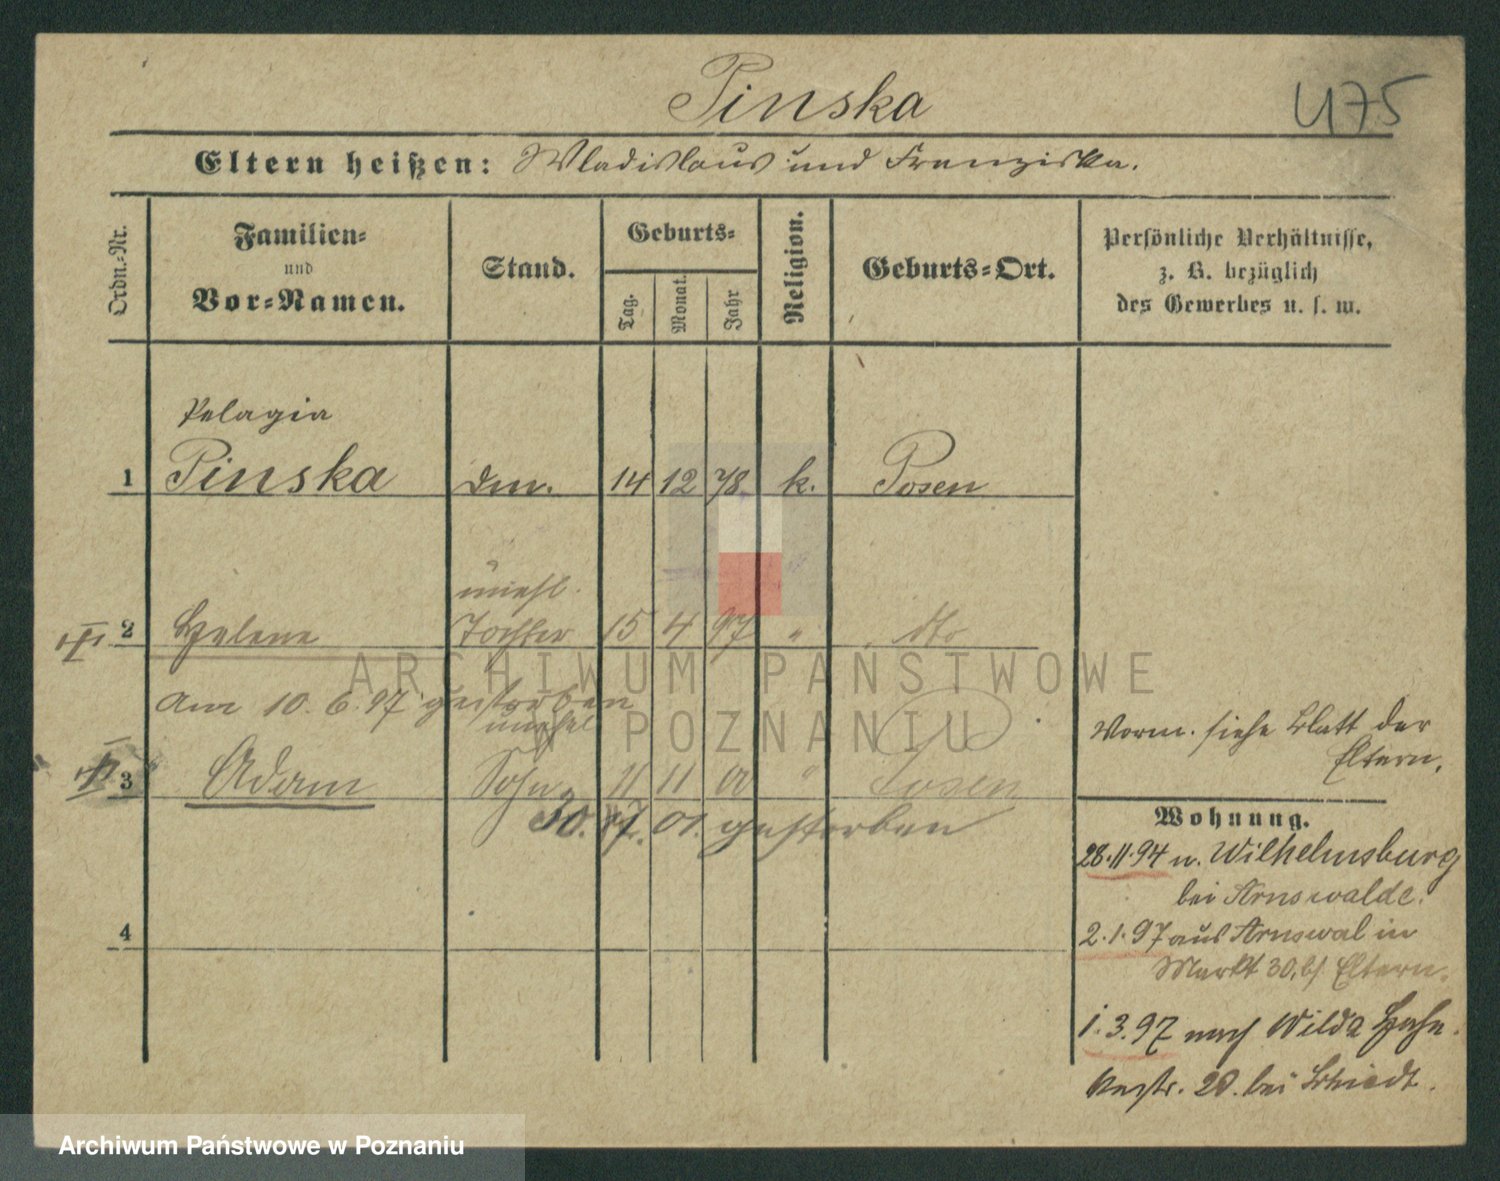 Pinska
475
Eltern heißen: Wladislaus und Franziska.
Ordn.-Nr.
Familien-
und
Vor-Namen.
Stand.
Geburts-
Tag.
Monat.
Jahr
Religion.
Geburts-Ort.
Persönliche Verhältnisse,
z. B. bezüglich
des Gewerbes u. s. w.
Pelagia
1 Pinska 14 12 78 k. Posen
unehl.
2 Helene Tochter 15 4 97 " dto
am 10. 6. 97 gestorben
unehel
3 Adam Sohn 11 11 00 " Posen
30. 01. gestorben
4
Vorm. siehe Blatt der
Eltern.
Wohnung.
28.11.94 n. Wilhelmsburg
bei Arnswalde.
2.1.97 aus Arnswal in
Markt 30, b/ Eltern.
1.3.97 nach Wilda
28. bei
ARCHIWUM PAŃSTWOWE
W POZNANIU
Archiwum Państwowe w Poznaniu